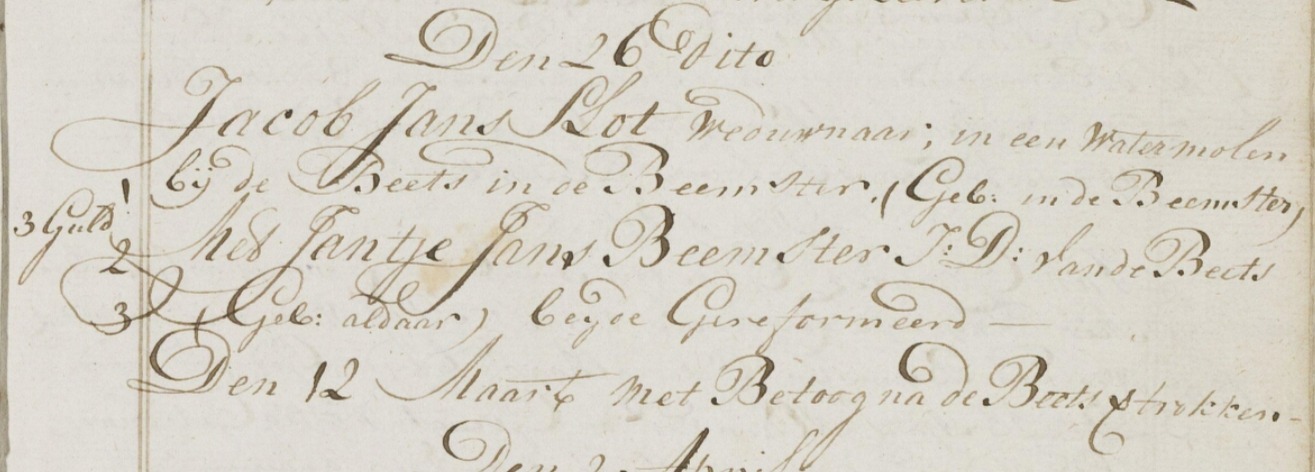 Den 26 Dito
Jacob Jans Slot Weduwnaar; in een Watermolen
bij de Beets in de Beemster. (Geb: in de Beemster)
3 Guld 1
2 Met Jantje Jans Beemster J: D: van de Beets
3 (Geb: aldaar) beyde Gereformeerd —
Den 12 Maart met Betoog na de Beets vertrokken -
Den 2 April